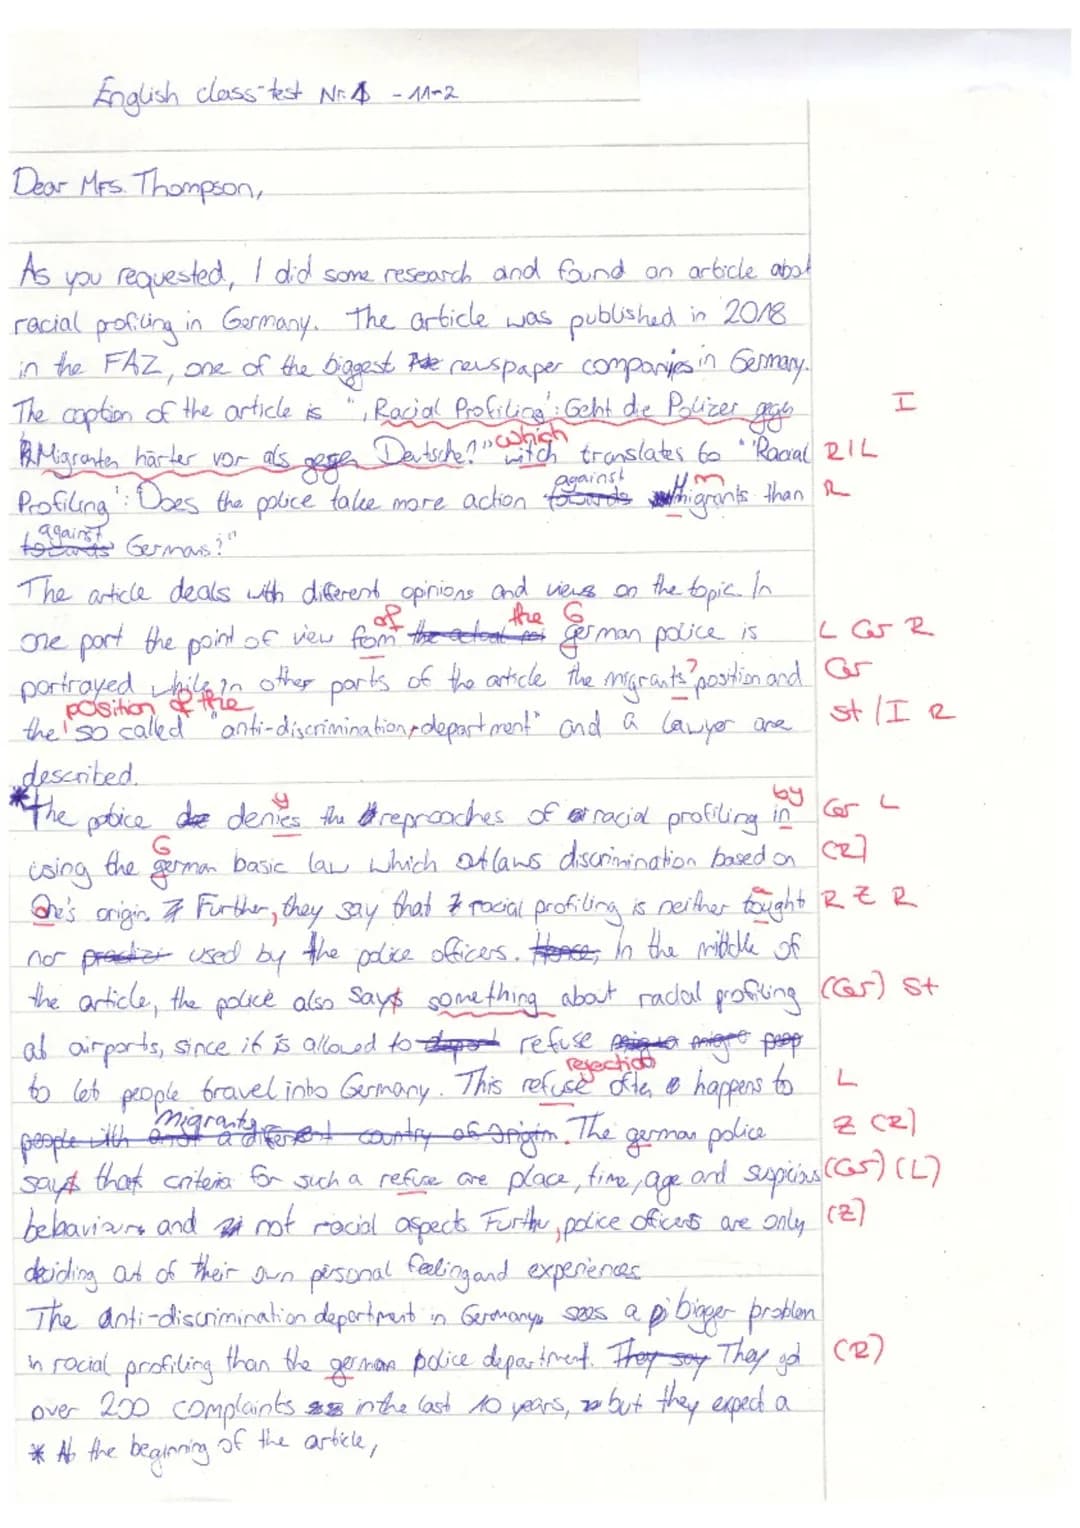 English class-test Nr. 1 - 11-2
Dear Mrs. Thompson,
As you requested, I did some research and found an article abot
racial profiling in Germany. The article was published in 2018
in the FAZ, one of the biggest newspaper companies in Germany.
The caption of the article is ", Racial Profiling': Geht die Polizei gegen I
Migranten härter vor als gegen Deutsche?" witch which translates to "'Racial R/L
Profiling': Does the police take more action towards against migrants than R
towards against Germans?"
The article deals with different opinions and views on the topic. In
one part the point of view from of the german G police is L Gr R
portrayed while in other parts of the article the migrants? position and Gr
position of the
the so called "anti-discrimination-department" and a lawyer are st/I R
described.
*The police denies y the reproaches of racial profiling in by Gr L
using the german G basic law which outlaws discrimination based on (R)
One's origin. Further, they say that racial profiling is neither tought a R Z R
nor used by the police officers. Hence, In the middle of
the article, the police also says something about racial profiling (Gr) st
at airports, since it is allowed to refuse
to let people travel into Germany. This refuse rejection often happens to L
people with a different country of origin Migrants. The german police Z (R)
says that criteria for such a refuse are place, time, age and suspicius (Gr) (L)
behaviours and not racial aspects. Further, police officers are only (Z)
deciding out of their own personal feeling and experiences
The anti-discrimination department in Germany sees a bigger problem
in racial profiling than the german police department. They say They got (R)
over 200 complaints in the last 10 years, but they expect a
* At the beginning of the article,